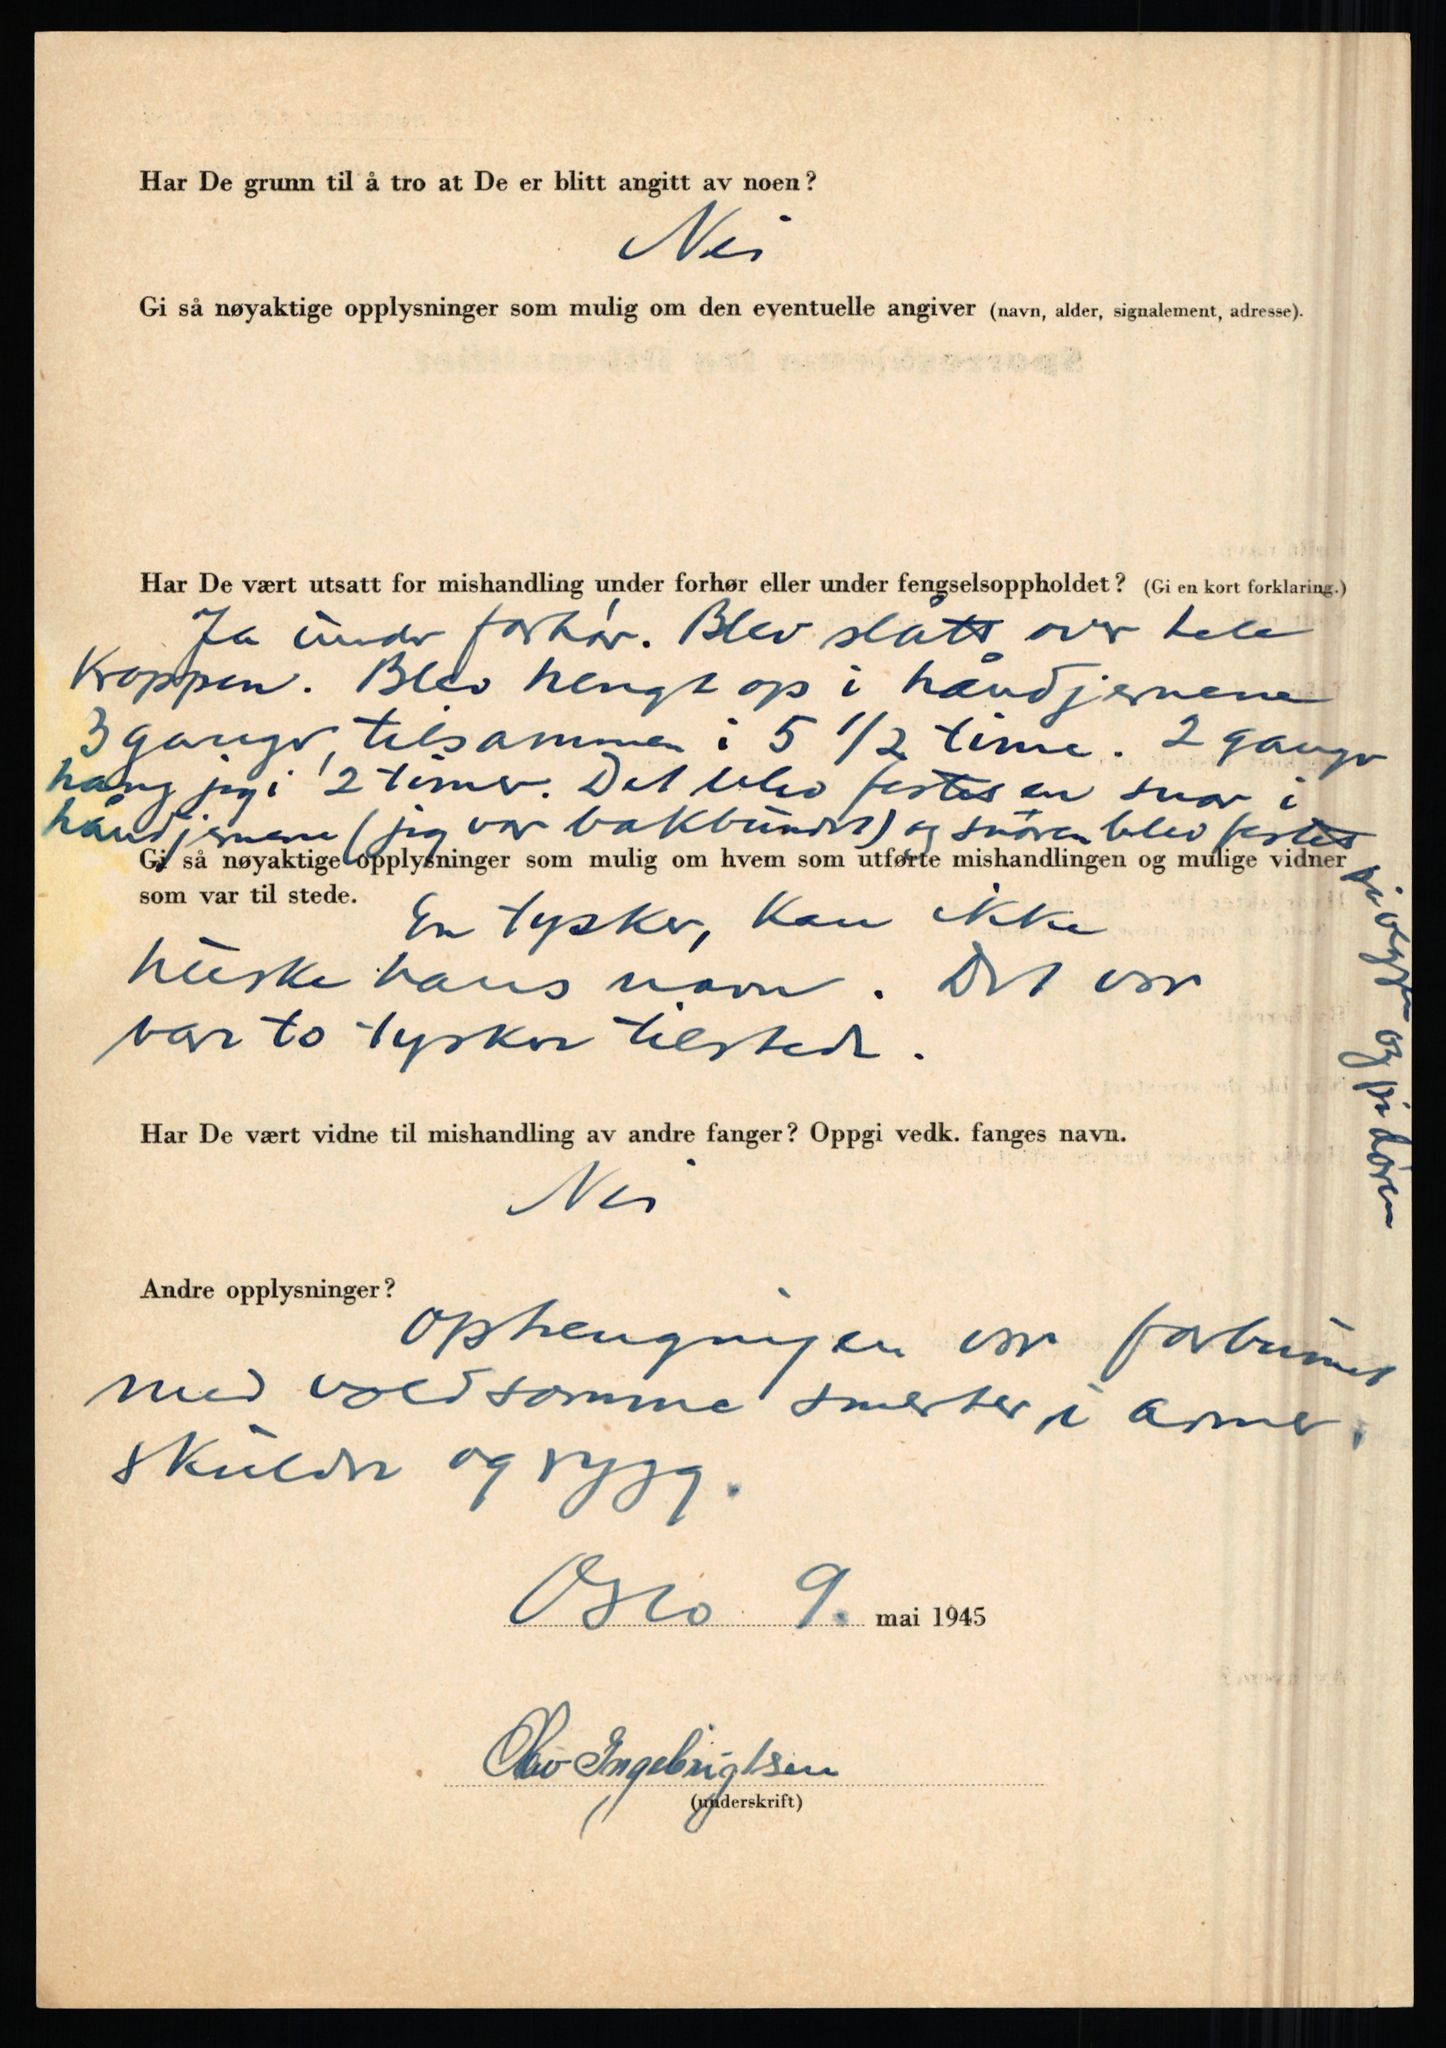 Har De grunn til å tro at De er blitt angitt av noen?
Nei
Gi så nøyaktige opplysninger som mulig om den eventuelle angiver (navn, alder, signalement, adresse).
Har De vært utsatt for mishandling under forhør eller under fengselsoppholdet? (Gi en kort forklaring.)
Ja under forhør. Blev slått over hele
kroppen. Blev hengt op i håndjernene
3 ganger, tilsammen i 5 1/2 time. 2 ganger
hang jeg i 2 timer. Det blev festet en snor i
håndjernene (jeg var bakbundet) og snoren blev festet
i veggen og på døren
Gi så nøyaktige opplysninger som mulig om hvem som utførte mishandlingen og mulige vidner
som var til stede.
En tysker, kan ikke
huske hans navn. Det var
bare to tyskere tilstede.
Har De vært vidne til mishandling av andre fanger? Oppgi vedk. fanges navn.
Nei
Andre opplysninger?
Ophengningen var forbunnet
med voldsomme smerter i armer,
skuldre og rygg.
Oslo 9. mai 1945
Olav Ingebrigtsen
(underskrift)